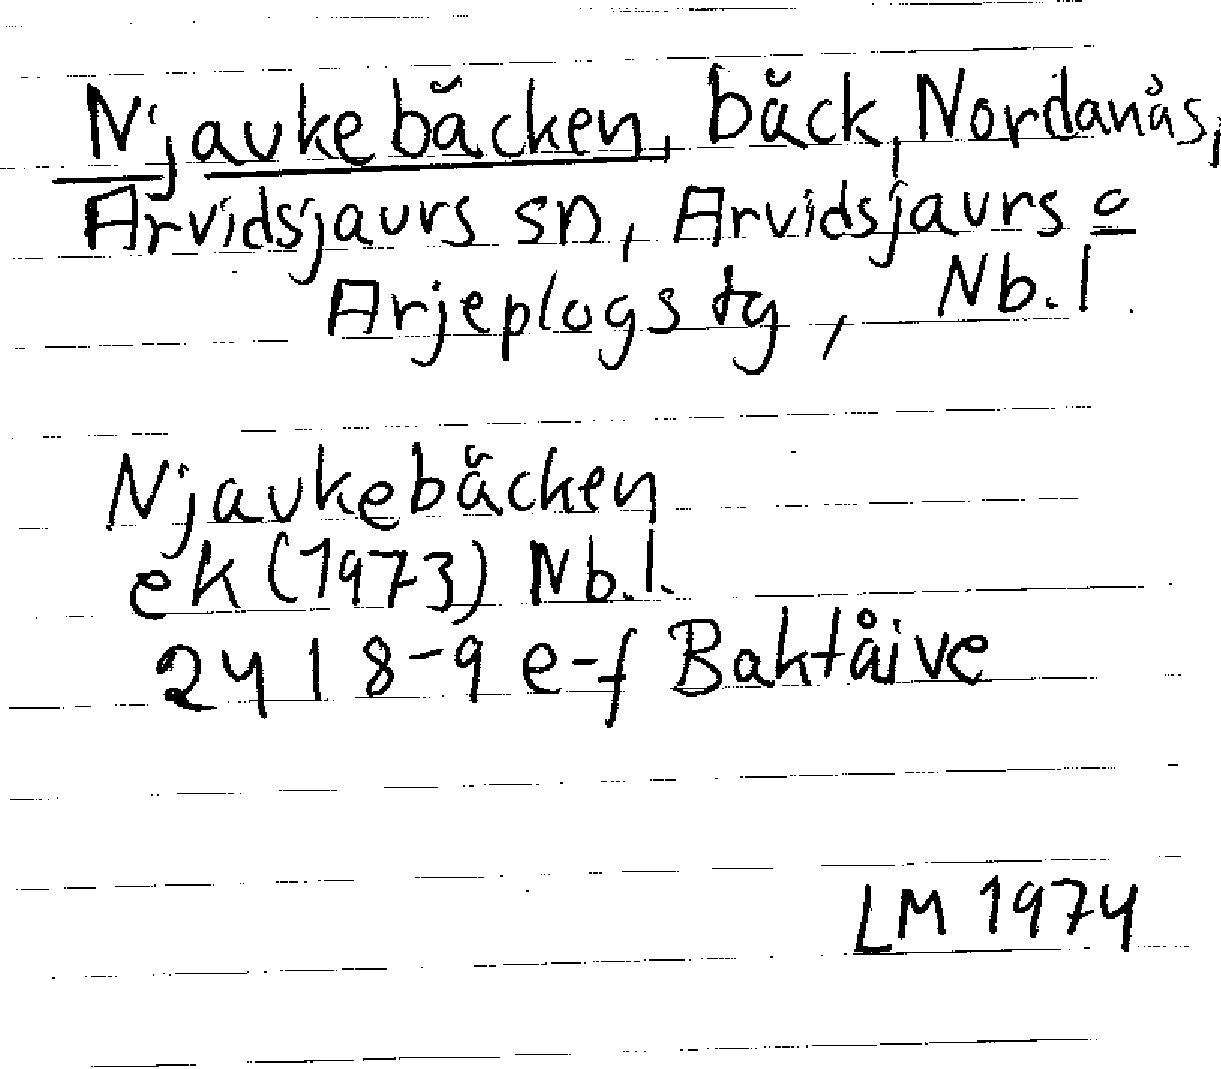 Njaukebäcken, bäck, Nordanås,
Arvidsjaurs sn, Arvidsjaurs o
Arjeplogs tg, Nb. l
Njaukebäcken
ek (1973) Nb. l.
24 I 8-9 e-f Baktåive
LM 1974